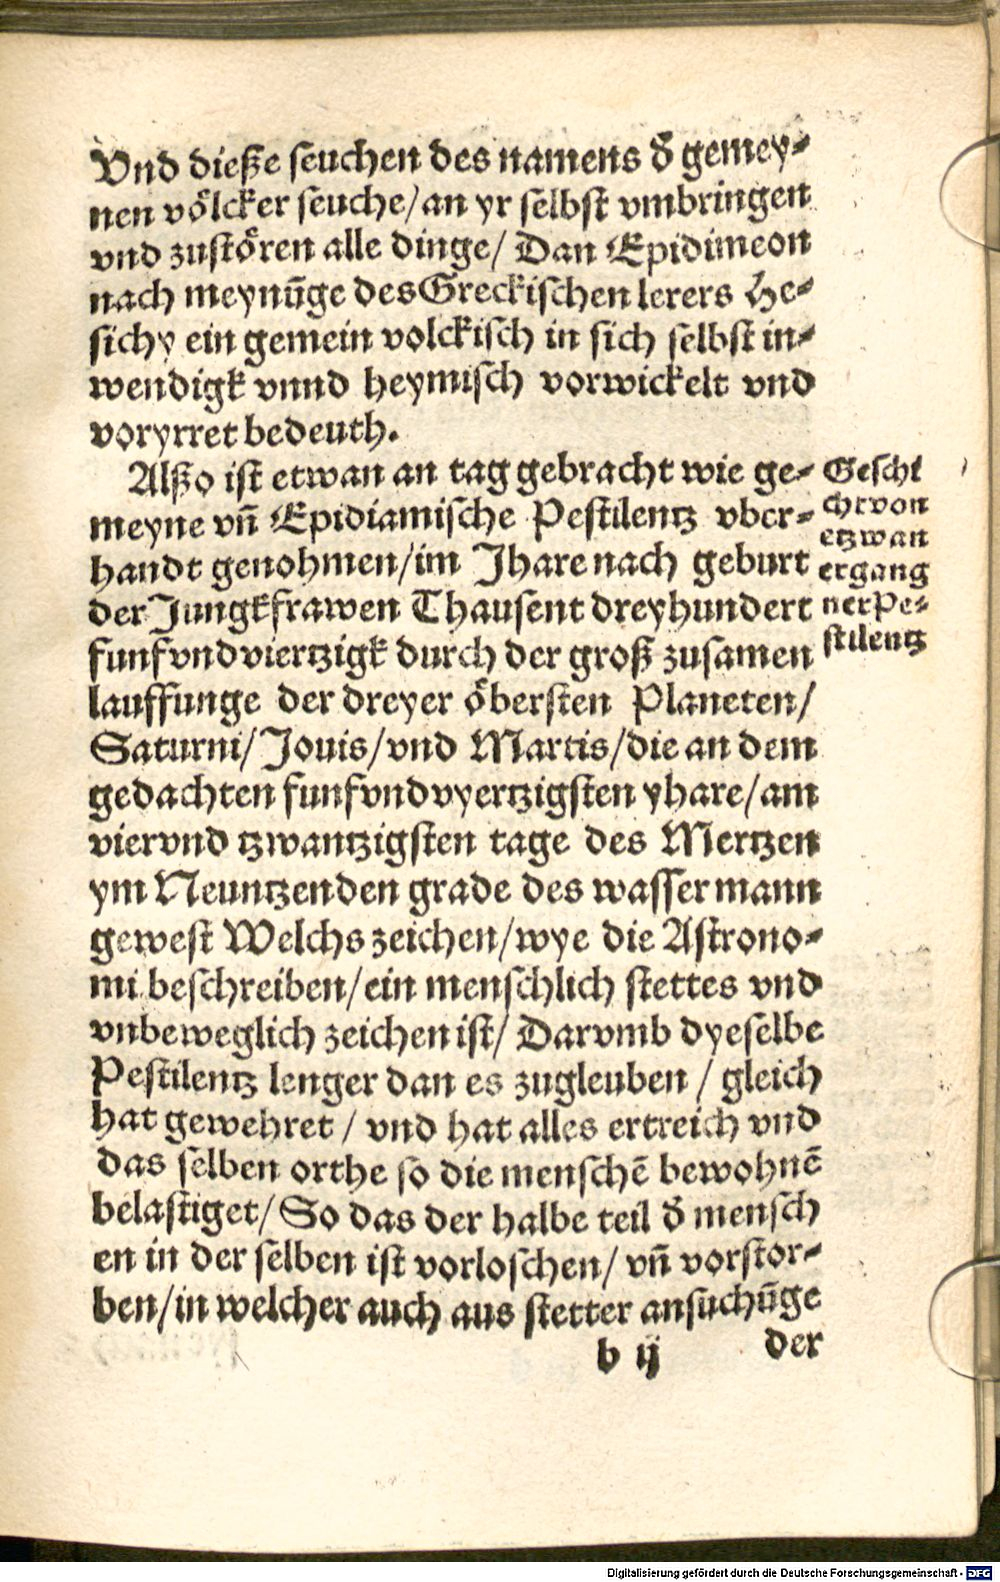 Vnd dieße seuchen des namens d̄ gemey⸗
nen voͤlcker seuche/an yr selbst vmbringen
vnd zustoͤren alle dinge/ Dan Epidimeon
nach meynūge des Greckischen lerers He⸗
sichy ein gemein volckisch in sich selbst in⸗
wendigk vnnd heymisch vorwickelt vnd
voryrret bedeuth.
Alßo ist etwan an tag gebracht wie ge⸗
meyne vn̄ Epidiamische Pestilentz vber⸗
handt genohmen/im Jhare nach geburt
der Jungkfrawen Thausent dreyhundert
funfvndviertzigk durch der groß zusamen
lauffunge der dreyer oͤbersten Planeten/
Saturni/Jouis/vnd Martis/die an dem
gedachten funfvndvyertzigsten yhare/am
viervnd tzwantzigsten tage des Mertzen
ym Neuntzenden grade des wasserman̄n
gewest Welchs zeichen/wye die Astrono⸗
mi beschreiben/ein menschlich stettes vnd
vnbeweglich zeichen ist/ Darvmb dyeselbe
Pestilentz lenger dan es zugleuben / gleich
hat gewehret / vnd hat alles ertreich vnd
das selben orthe so die menschē bewohnē
belastiget/ So das der halbe teil d̄ mensch
en in der selben ist vorloschen/ vn̄ vorstor⸗
ben/in welcher auch aus stetter ansuchūge
b ij
der
Geschi
cht von
etzwan
ergang
ner Pe⸗
stilentz
Digitalisierung gefördert durch die Deutsche Forschungsgemeinschaft - DFG